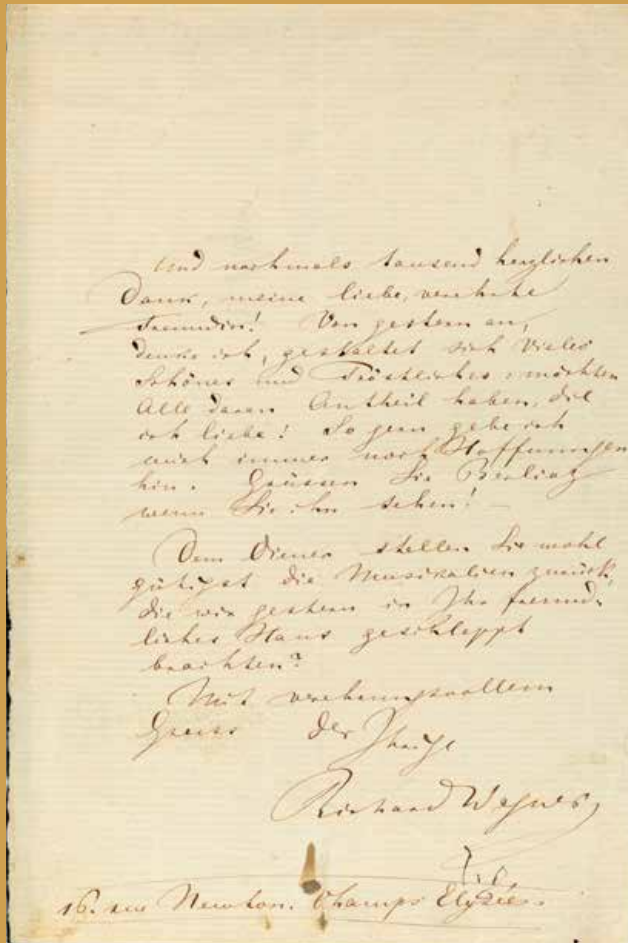 Und nochmals tausend herzlichen
Dank, meine liebe, verehrte
Freundin! Von gestern an,
denke ich, gestaltet sich Vieles
Schönes und Tröstliches: möchten
Alle daran Antheil haben, die
ich liebe! So gern gebe ich
mich immer noch Hoffnungen
hin. Grüssen Sie Berlioz
wenn Sie ihn sehen! —
Dem Diener stellen Sie wohl
gütigst die Musikalien zurück,
die wir gestern in Ihr freund-
liches Haus geschleppt
brachten?
Mit verehrungsvollem
Gruss der Ihrige
Richard Wagner
16. rue Newton. Champs Elysées.